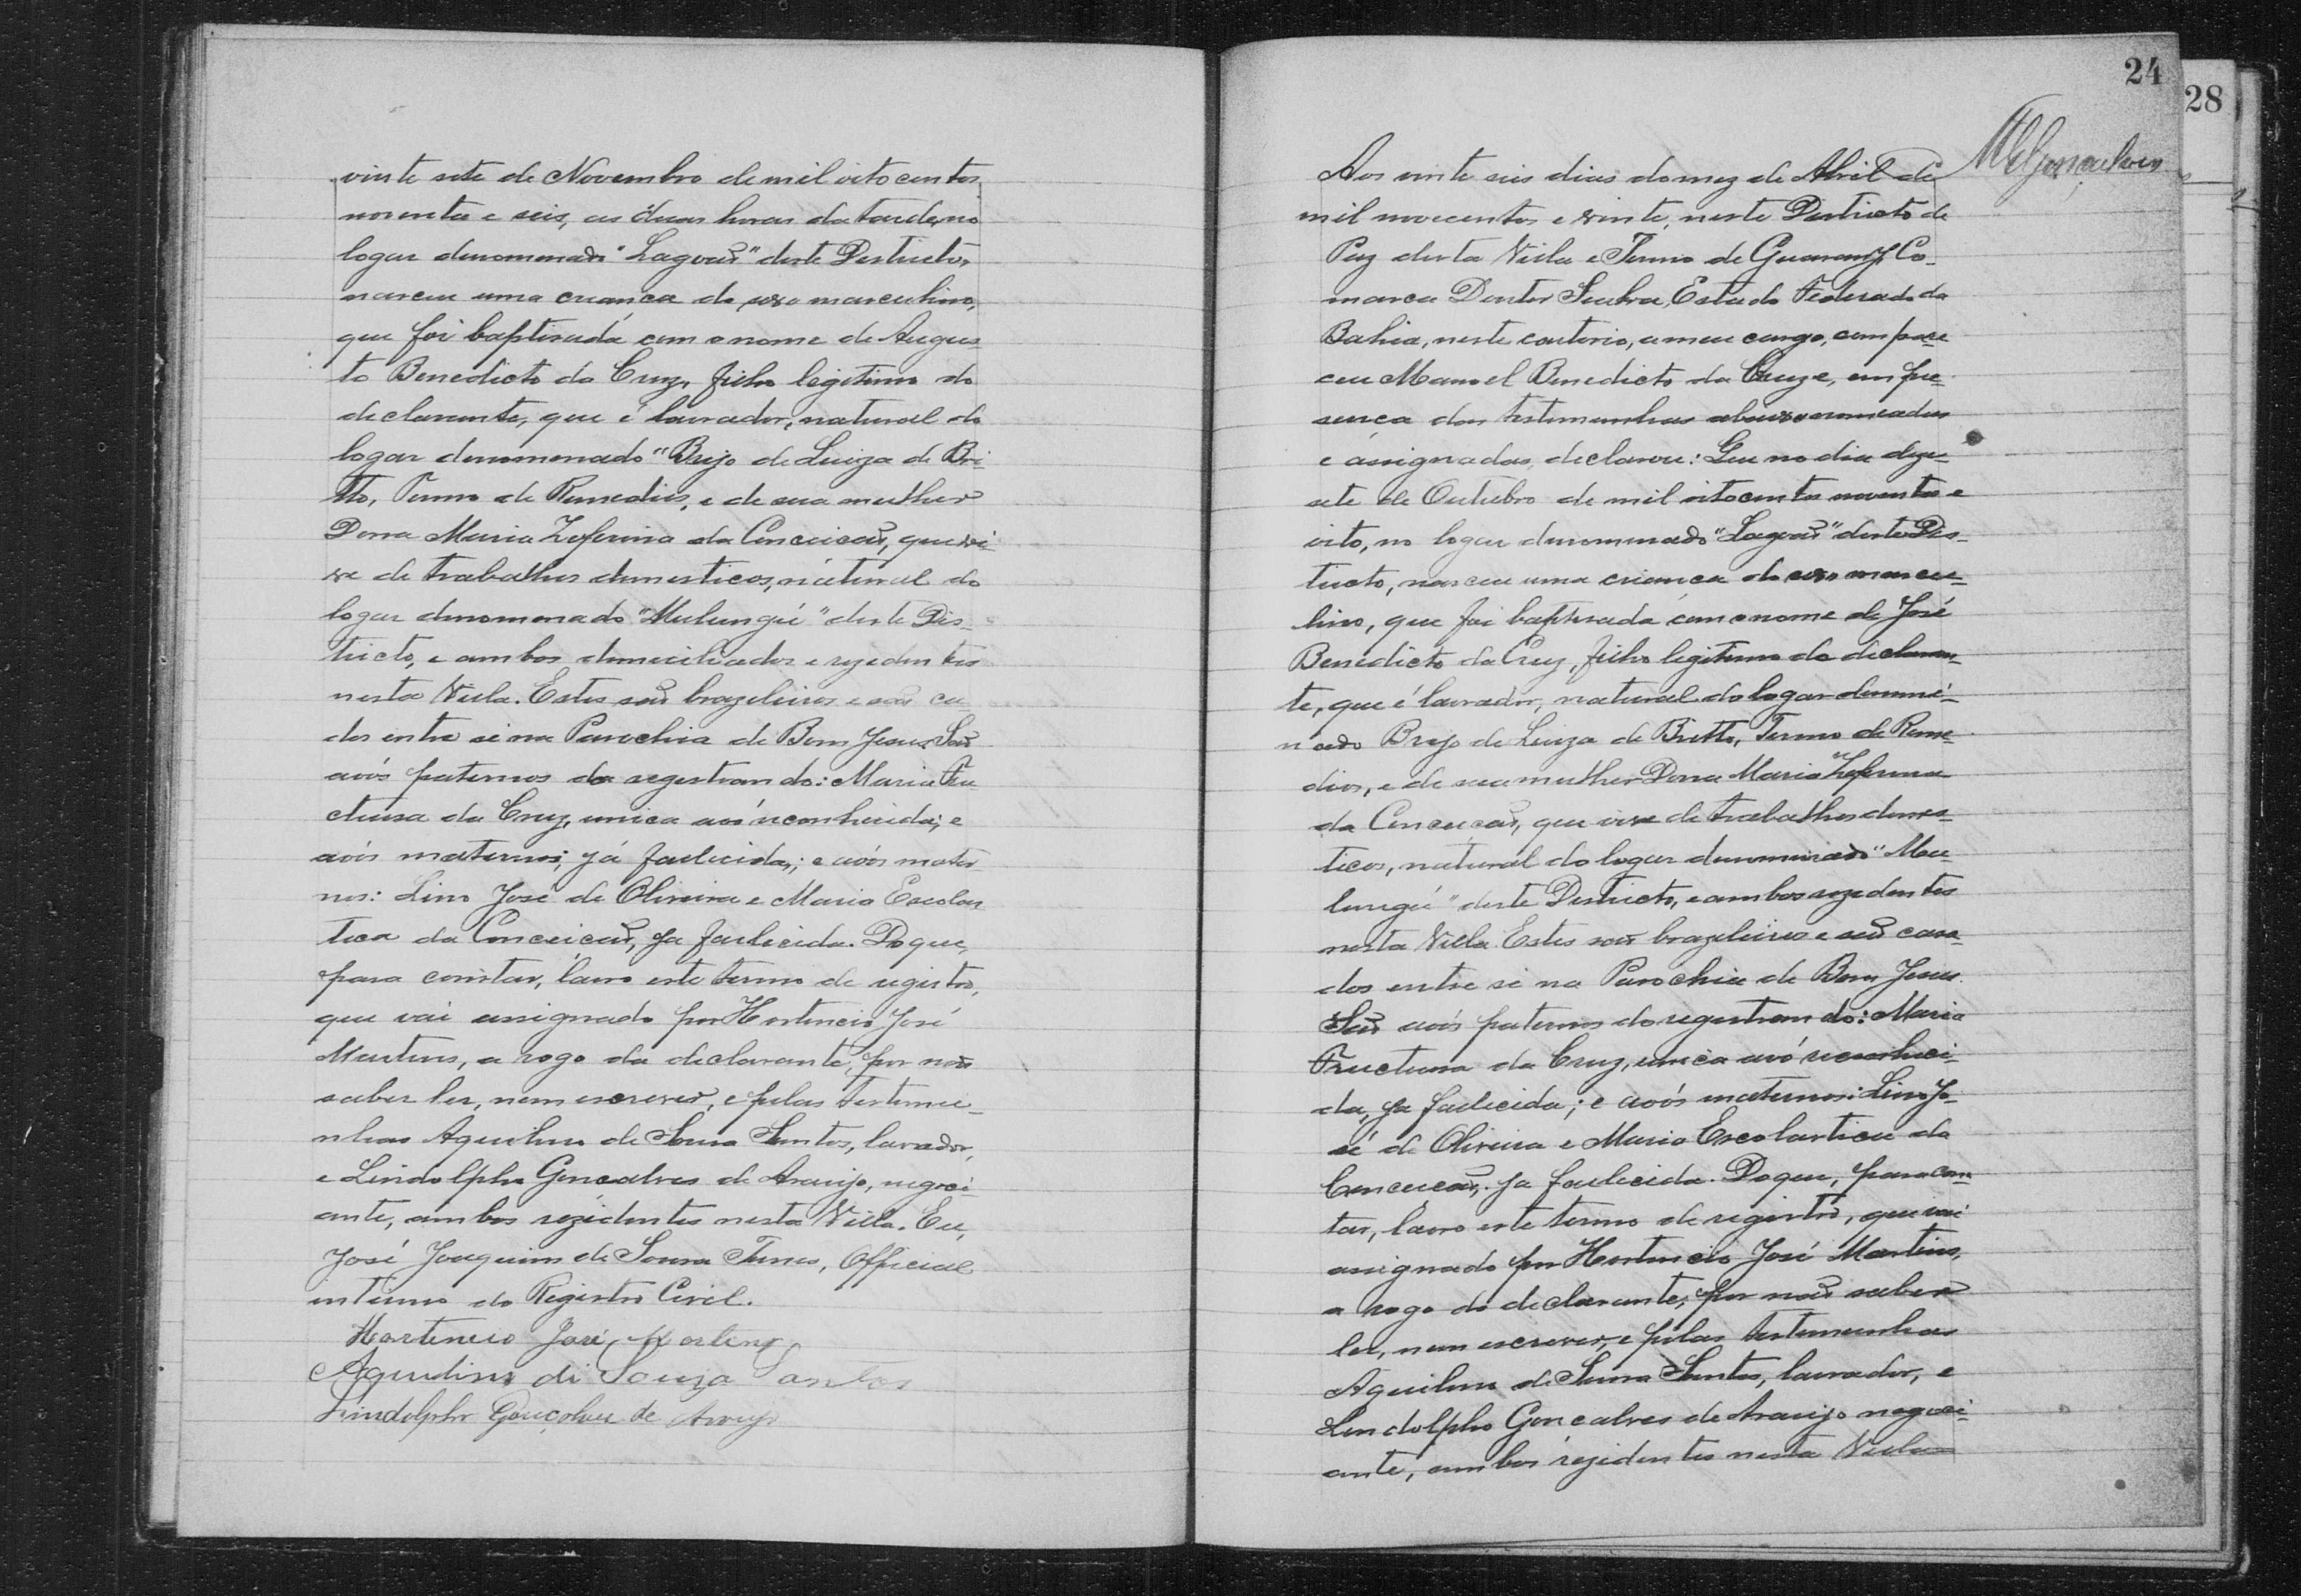 vinte sete de Novembro de mil oito centos
noventa e seis, as duas horas da tarde, no
logar denomenado "Lagoas" deste Destricto,
nasceu uma criança do sexo masculino,
que foi baptisada com o nome de Augus
to Benedicto da Cruz, filho legitimo do
declarante, que é lavrador, natural do
logar denomenado "Brejo de Luiza de Bri-
tto, Termo de Remedios, e de sua mulher
Dona Maria Zeferina da Conceicaõ, que vi-
ve de trabalhos domesticos, natural do
logar denomenado "Mulungú" deste Dis-
tricto, e ambos domeciliados e rezedentes
nesta Villa. Estes saõ brazileiros e saõ ca-
dos entre si na Parochia de Bom Jesus. Saõ
avós paternos do registrando: Maria Fru
ctuosa da Cruz, unica avó reconhecida; e
avós maternos; já falecida; e avós mater
nos: Lino José de Oliveira e Maria Escolas
tica da Conceicaõ, ja falecida. Do que,
para constar, lavro este termo de registro,
que vai assignado por Hortencio José
Martins, a rogo do declarante, por naõ
saber ler, nem escrever, e pelas testemu-
nhas Aquilino de Souza Santos, lavrador,
e Lindolpho Goncalves de Araujo, negoci-
ante, ambos rezidentes nesta Villa. Eu,
José Joaquim de Souza Tunes, Official
interino do Registro Civil.
Hortencio José Martins
Aquilino di Souza Santos
Lindolpho Gonçalves de Araujo
24
28
MelGonçalves
Aos vinte seis dias do mez de Abril de
mil novecentos e vinte, neste Destricto de
Paz desta Villa e Termo de Guarany, Co-
marca Doutor Seabra, Estado Federado da
Bahia, neste cartorio, a meu cargo, compare
ceu Manoel Benedicto da Cruz e, em pre-
sença das testemunhas abaixo nomeadas
e assignadas, declarou: Que no dia deze-
sete de Outubro de mil oitocentos noventa e
oito, no logar denomenado "Lagoas" deste Dis-
tricto, nasceu uma criança do sexo mascu-
lino, que foi baptisada com o nome de José
Benedicto da Cruz, filho legitimo do declaran-
te, que é lavrador, natural do logar denomi-
nado Brejo de Luiza de Britto, Termo de Reme-
dios, e de sua mulher Dona Maria Zeferina
da Conceicaõ, que vive de trabalhos domes-
ticos, natural do logar denominado "Mu-
lungú" deste Destricto, e ambos rezedentes
nesta Villa. Estes saõ brazileiros e saõ casa-
dos entre si na Parochia de Bom Jesus.
Saõ avós paternos do registrando: Maria
Fructuosa da Cruz, unica avó reconheci-
da, ja falecida; e avós maternos: Lino Jo-
sé de Oliveira e Maria Escolastica da
Conceicaõ, ja falecida. Do que, para cons
tar, lavro este termo de registro, que vai
assignado por Hortencio José Martins,
a rogo do declarante, por naõ saber
ler, nem escrever, e pelas testemunhas
Aquilino de Souza Santos, lavrador, e
Lindolpho Goncalves de Araujo negoci-
ante, ambos rezidentes nesta Villa